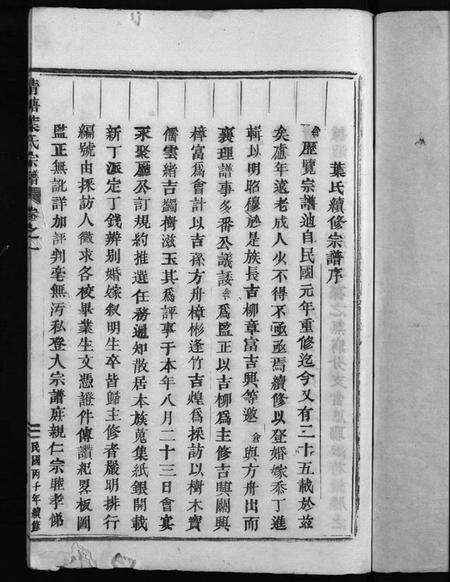 葉氏續修宗譜序
僉歷覽宗譜迪自民國元年重修迄今又有三十五載於茲
矣歷年遠老成人火不得不亟亟焉續修以登婚嫁黍丁進
輯以明昭穆於是族長吉柳章富吉興等邀僉與方舟出而
襄理譜事多番公議諉僉為監正以吉柳為主修吉興關興
樟富為會計以吉孫方舟樟彬逢竹吉煌為採訪以樹木寶
儒雲緒吉蠲衡滋玉其為評事于本年八月二十三日會宴
來聚廳公訂規約推選任務通知散居本族蒐集紙銀開載
新丁派定丁錢辨別婚嫁叙明生卒皆歸主修者嚴明排行
編號由採訪人徵求各校畢業生文憑證件傳讚紀畧板圖
監正無訛詳加評判毫無污私登入宗譜庶親仁宗睦孝悌
葉氏宗譜
卷之一
民國丙子年續修